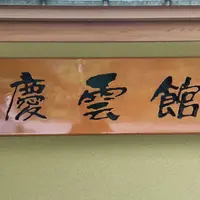 慶雲館